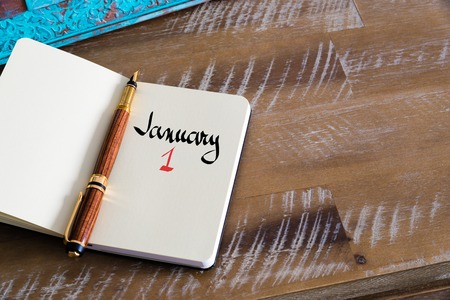 January
1